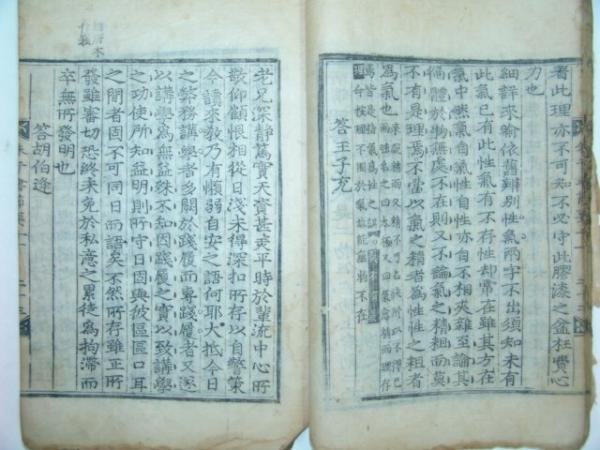 看此理亦不可知不必守此膠漆之盆枉費心
力也
細詳來喻依舊辨別性氣兩字不出須知未有
此氣已有此性氣有不存性却常在雖其方在
氣中然氣自氣性自性亦自不相夾雜至論其
徧體於物無處不在則又不論氣之精粗而莫
不有是理焉不當以氣之精者爲性性之粗者
爲氣也
來喻雖精而又精不可名狀所以不得已
焉皆是指氣爲性之誤
答王子充
老兄深靜篤實天資甚美平時於輩流中心所
敬仰顧恨相從日淺未得深扣所存以自警策
今讀來敎乃有懶弱自安之語何耶大抵今日
之弊務講學者多闕於踐履而專踐履者又遂
以講學爲無益殊不知因踐履之實以致講學
之功使所知益明則所守日固與彼區區口耳
之間者固不可同日而語矣不然所存雖正所
發雖審切恐終未免於私意之累徒爲拘滯而
卒無所發明也
答胡伯逢